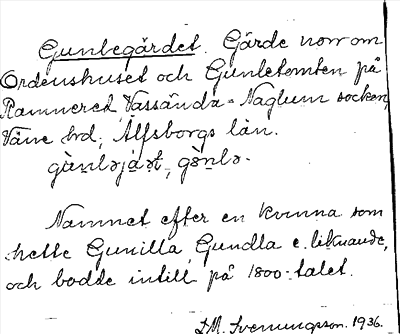 Gunlegärdet. Gärde norr om
Ordenshuset och Gunletomten på
Ramnered, Vassända-Naglum socken,
Väne hd, Älfsborgs län.
Namnet efter en kvinna som
hette Gunilla, Gundla e. liknande,
och bodde intill på 1800-talet.
1936.